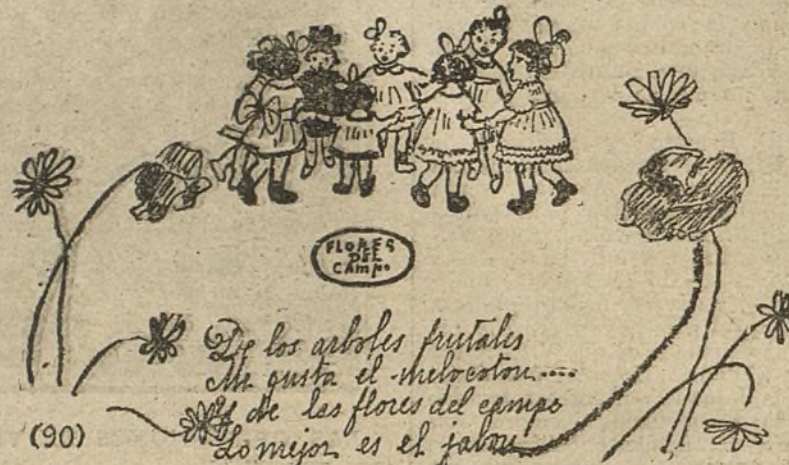 FLORES
DEL
CAMPO
De los arboles frutales
Me gusta el melocoton....
Y de las flores del campo
Lo mejor es el jabon
(90)